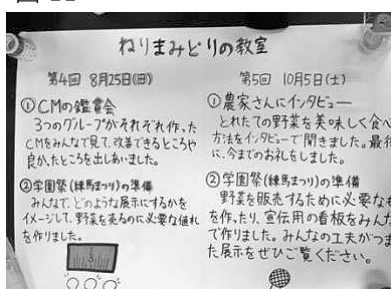 ねりまみどりの教室
第4回 8月25日(日)
①CMの鑑賞会
3つのグループがそれぞれ作った
CMをみんなで見て、改善できるところや
良かったところを出しあいました。
②学園祭(練馬まつり)の準備
みんなで、どのような展示にするかを
イメージして、野菜を売るのに必要な値札
を作りました。
第5回 10月5日(土)
①農家さんにインタビュー
とれたての野菜を美味しく食べ
方法をインタビューで聞きました。最後
に、今までのお礼をしました。
②学園祭(練馬まつり)の準備
野菜を販売するために必要な
を作ったり、宣伝用の看板をみん
で作りました。みんなの工夫がつま
た展示をぜひご覧ください。